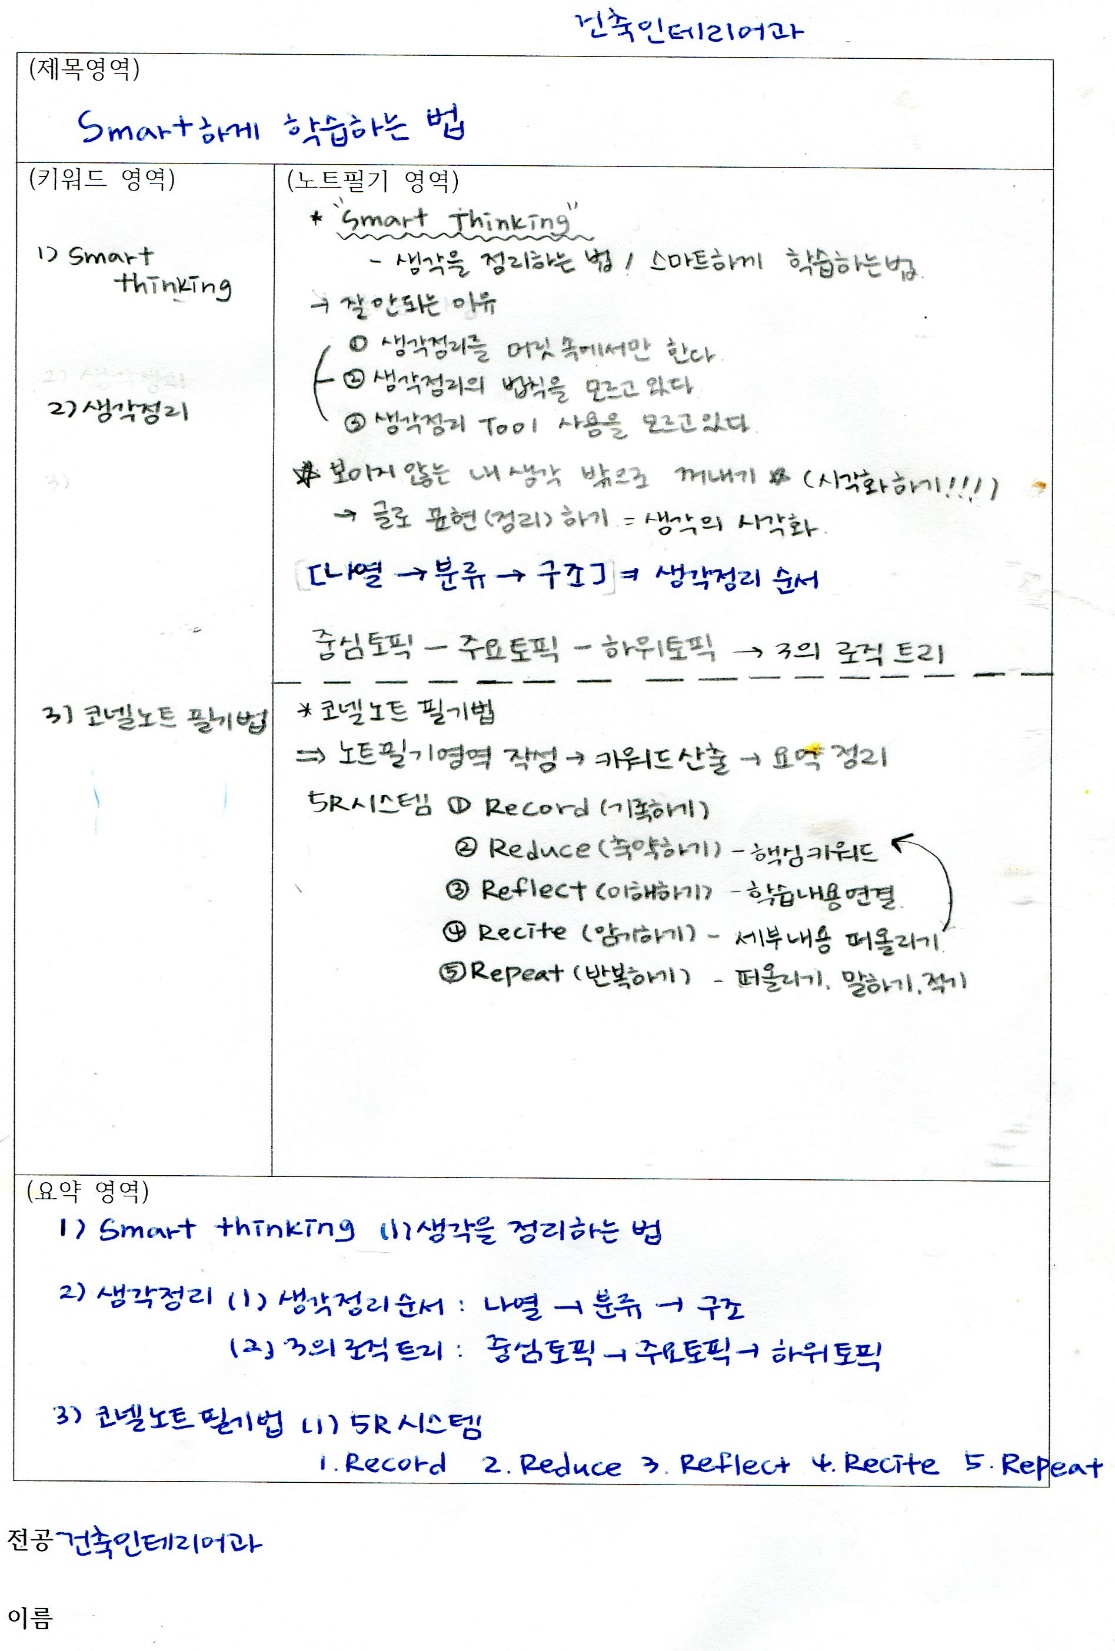 건축인테리어과
(제목영역)
Smart하게 학습하는 법
(키워드 영역)
1) Smart
thinking
2) 생각정리
3) 코넬노트 필기법
(노트필기 영역)
* "Smart Thinking"
- 생각을 정리하는 법 / 스마트하게 학습하는법.
→ 잘 안되는 이유
① 생각정리를 머릿속에서만 한다.
② 생각정리의 법칙을 모르고 있다.
③ 생각정리 Tool 사용을 모르고있다.
* 보이지 않는 내 생각 밖으로 꺼내기 * (시각화하기!!!)
→ 글로 표현(정리)하기 = 생각의 시각화.
[나열 → 분류 → 구조] ⇒ 생각정리 순서
중심토픽 - 주요토픽 - 하위토픽 → 3의 로직 트리
* 코넬노트 필기법
⇒ 노트필기영역 작성 → 키워드산출 → 요약 정리
5R시스템 ① Record (기록하기)
② Reduce (축약하기) - 핵심키워드
③ Reflect (이해하기) - 학습내용연결.
④ Recite (암기하기) - 세부내용 떠올리기
⑤ Repeat (반복하기) - 떠올리기, 말하기, 적기
(요약 영역)
1) Smart thinking (1) 생각을 정리하는 법
2) 생각정리 (1) 생각정리순서 : 나열 → 분류 → 구조
(2) 3의 로직트리 : 중심토픽 → 주요토픽 → 하위토픽
3) 코넬노트필기법 (1) 5R 시스템
1. Record 2. Reduce 3. Reflect 4. Recite 5. Repeat
전공 건축인테리어과
이름